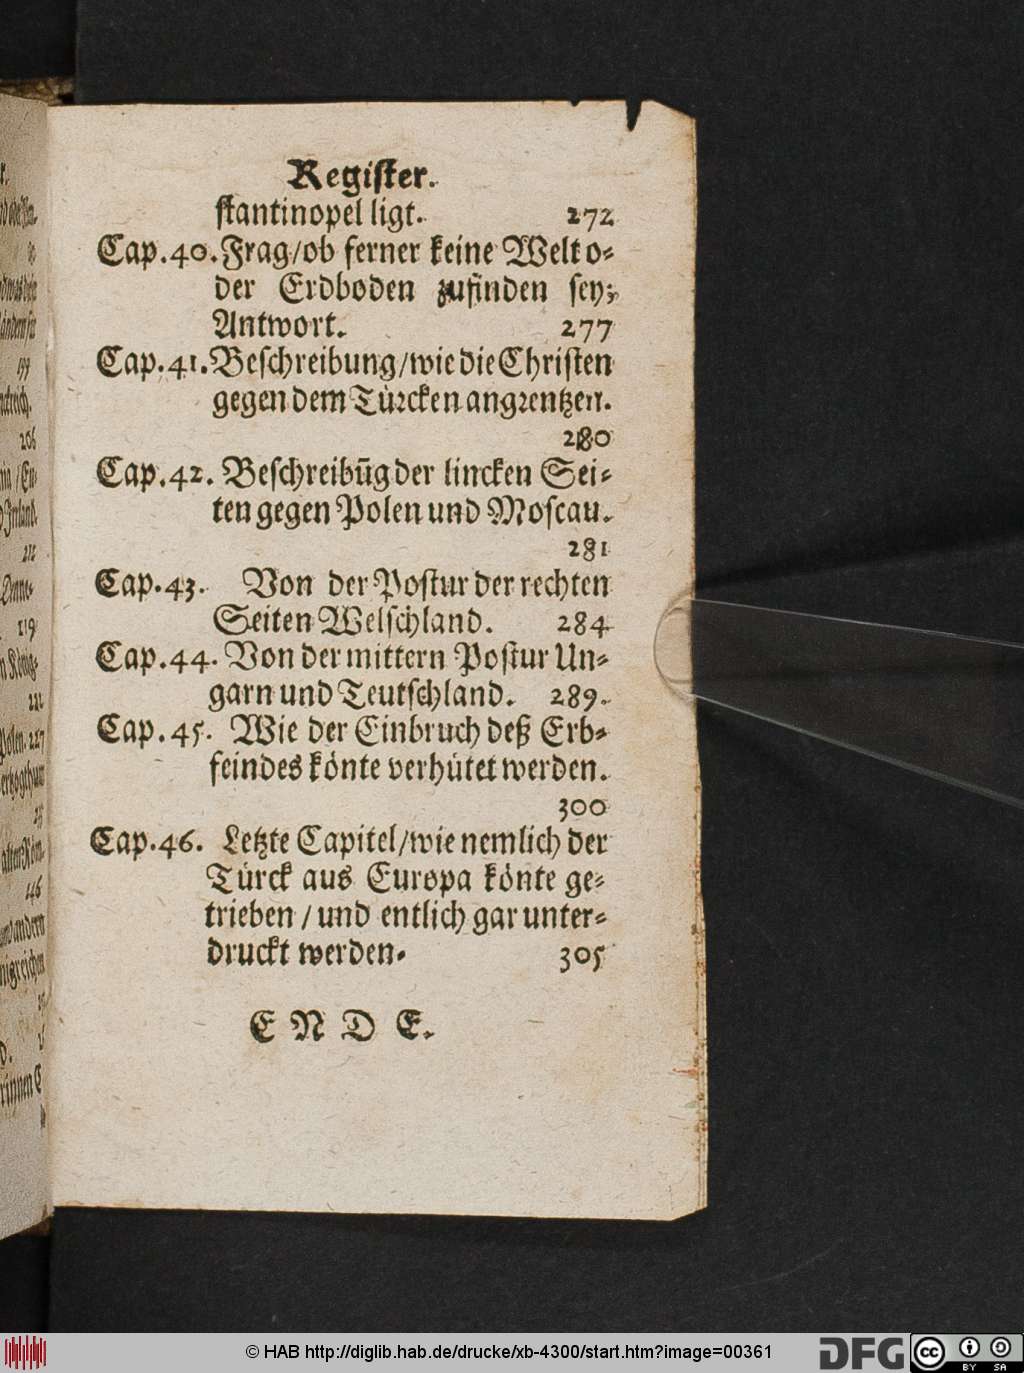 Register.
stantinopel ligt. 272
Cap. 40. Frag / ob ferner keine Welt o-
der Erdboden zufinden sey;
Antwort. 277
Cap. 41. Beschreibung / wie die Christen
gegen dem Türcken angrentzen.
280
Cap. 42. Beschreibūg der lincken Sei-
ten gegen Polen und Moscau.
281
Cap. 43. Von der Postur der rechten
Seiten Welschland. 284
Cap. 44. Von der mittern Postur Un-
garn und Teutschland. 289.
Cap. 45. Wie der Einbruch deß Erb-
feindes könte verhütet werden.
300
Cap. 46. Letzte Capitel / wie nemlich der
Türck aus Europa könte ge-
trieben / und entlich gar unter-
druckt werden. 305
E N D E.
© HAB http://diglib.hab.de/drucke/xb-4300/start.htm?image=00361
DFG
cc
BY SA